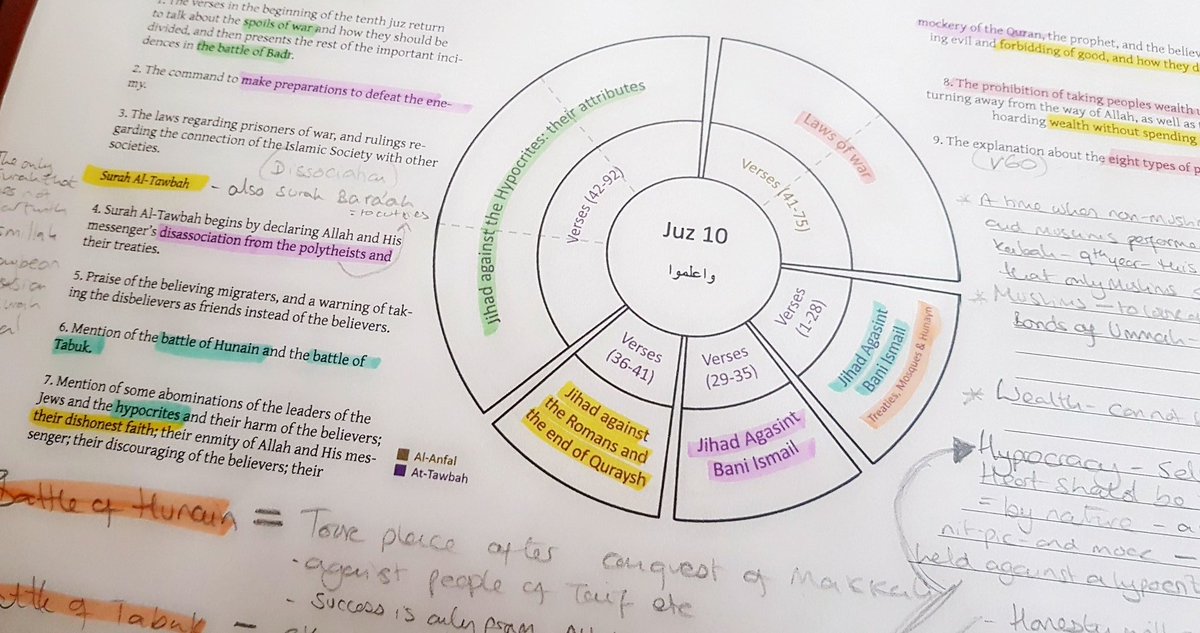 1. The verses in the beginning of the tenth juz return
to talk about the spoils of war and how they should be
divided, and then presents the rest of the important inci-
dences in the battle of Badr.
2. The command to make preparations to defeat the ene-
my.
3. The laws regarding prisoners of war, and rulings re-
garding the connection of the Islamic Society with other
societies.
(Dissociation)
Surah Al-Tawbah - also Surah Bara'ah
4. Surah Al-Tawbah begins by declaring Allah and His
messenger's disassociation from the polytheists and
their treaties.
5. Praise of the believing migraters, and a warning of tak-
ing the disbelievers as friends instead of the believers.
6. Mention of the battle of Hunain and the battle of
Tabuk.
7. Mention of some abominations of the leaders of the
Jews and the hypocrites and their harm of the believers;
their dishonest faith; their enmity of Allah and His mes-
senger; their discouraging of the believers; their
The only
Surah that
Jihad against the Hypocrites: their attributes
Verses (42-92)
Laws of war
Verses (41-75)
Juz 10
واعلموا
Verses
(1-28)
Jihad Agasint
Bani Ismail
Treaties, Mosques & Hunayn
Verses
(29-35)
Jihad Agasint
Bani Ismail
Verses
(36-41)
Jihad against
the Romans and
the end of Quraysh
Al-Anfal
At-Tawbah
mockery of the Quran, the prophet, and the believ
ing evil and forbidding of good, and how they d
8. The prohibition of taking peoples wealth u
turning away from the way of Allah, as well as
hoarding wealth without spending
9. The explanation about the eight types of p
(V60)
* A time when non-muslim
and muslims performe
Kabah - 9th year - this
that only Muslims
* Muslims - to love
Bonds of Ummah -
* Wealth - cannot
Hypocracy - Sel
Heart should be
= by nature - a
nit-pic - and mock -
held against a hypocrit
- Honesty will
Battle of Hunain = Took place after conquest of Makkah
- against people of Taif etc
- Success is only from
Battle of Tabuk -